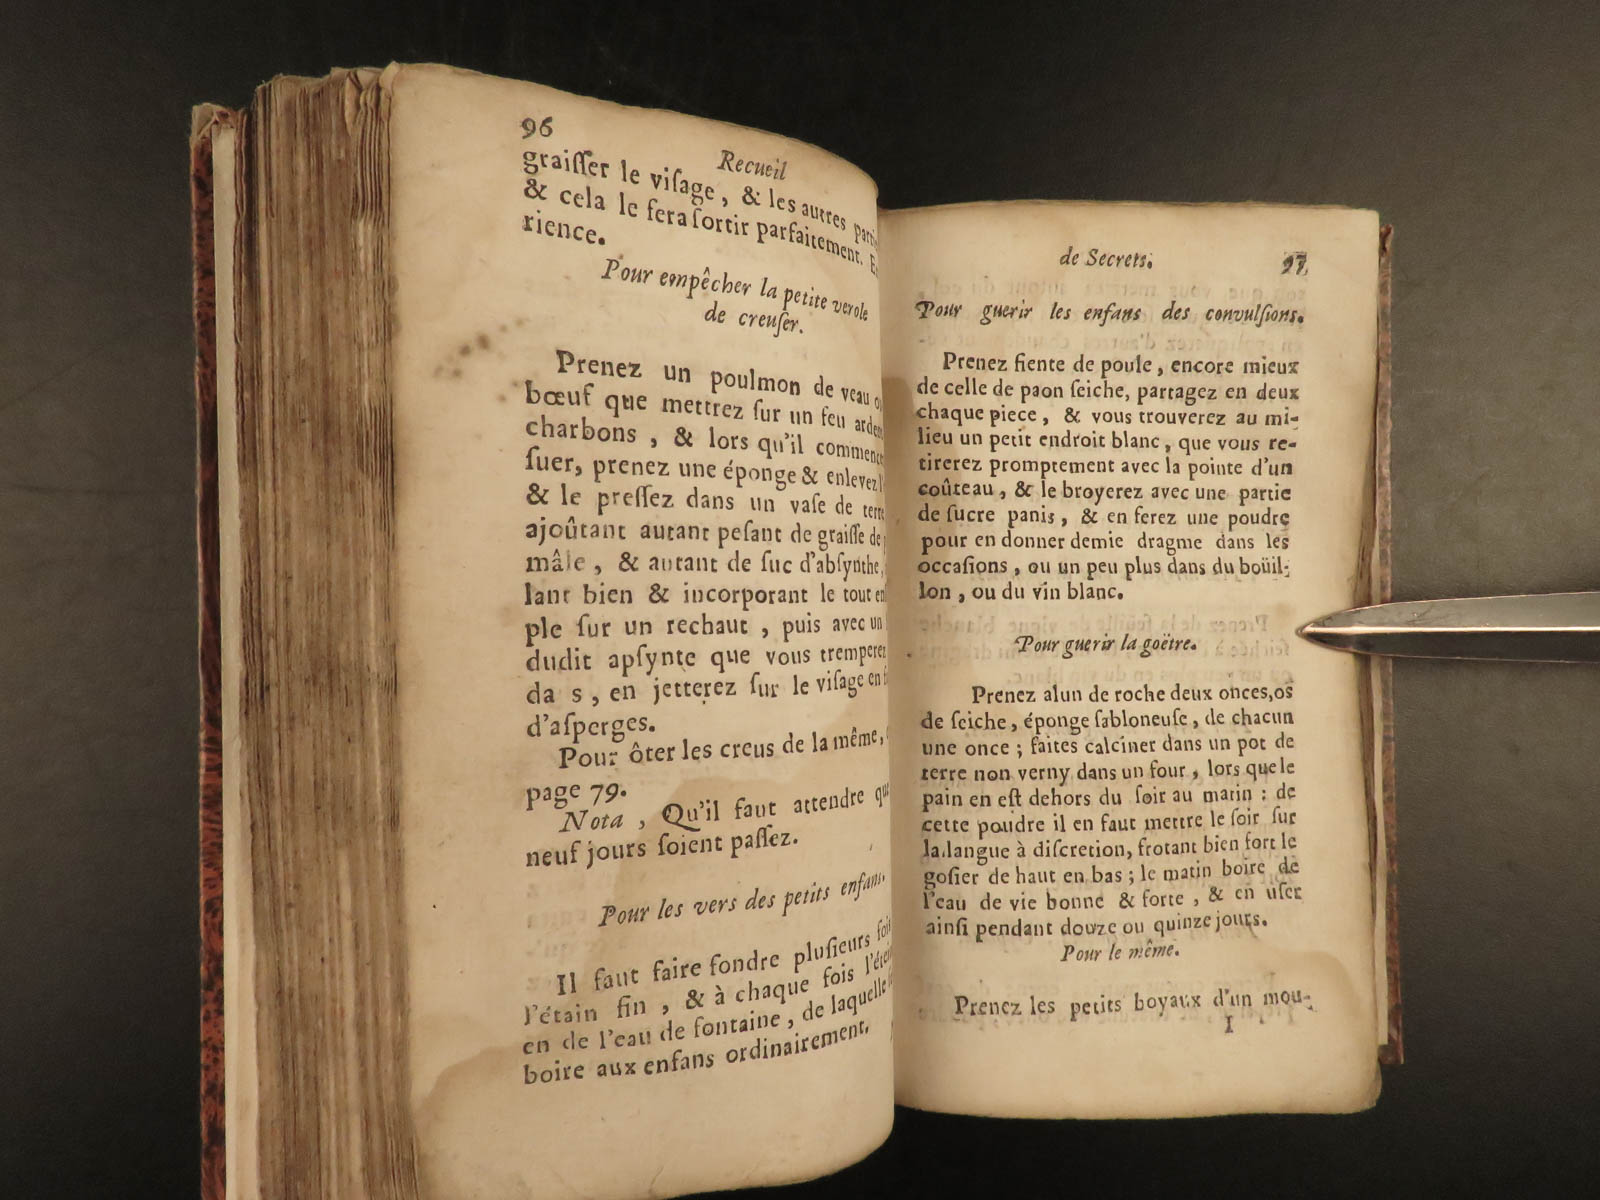 96
Recueil
graiſſer le viſage, & les autres
& cela le fera ſortir parfaitement.
rience.
Pour empêcher la petite verole
de creuſer.
Prenez un poulmon de veau
bœuf que mettrez ſur un feu
charbons, & lors qu'il
ſuer, prenez une éponge & enlevez
& le preſſez dans un vaſe de terre
ajoûtant autant peſant de graiſſe de
mâle, & autant de ſuc d'abſynthe,
lant bien & incorporant le tout
ple ſur un rechaut, puis avec un
dudit apſynte que vous tremperez
da s, en jetterez ſur le viſage en
d'aſperges.
Pour ôter les creus de la même,
page 79.
Nota, Qu'il faut attendre
neuf jours ſoient paſſez.
Pour les vers des petits enfans.
Il faut faire fondre pluſieurs fois
l'étain fin, & à chaque fois
en de l'eau de fontaine, de laquelle
boire aux enfans ordinairement.
de Secrets.
97
Pour guerir les enfans des convulſions.
Prenez fiente de poule, encore mieux
de celle de paon ſeiche, partagez en deux
chaque piece, & vous trouverez au mi-
lieu un petit endroit blanc, que vous re-
tirerez promptement avec la pointe d'un
coûteau, & le broyerez avec une partie
de ſucre panis, & en ferez une poudre
pour en donner demie dragme dans les
occaſions, ou un peu plus dans du boüil-
lon, ou du vin blanc.
Pour guerir la goëtre.
Prenez alun de roche deux onces, os
de ſeiche, éponge ſabloneuſe, de chacun
une once ; faites calciner dans un pot de
terre non verny dans un four, lors que le
pain en eſt dehors du ſoir au matin : de
cette poudre il en faut mettre le ſoir ſur
la langue à diſcretion, frotant bien fort le
goſier de haut en bas ; le matin boire de
l'eau de vie bonne & forte, & en uſer
ainſi pendant douze ou quinze jours.
Pour le même.
Prenez les petits boyaux d'un mou-
I